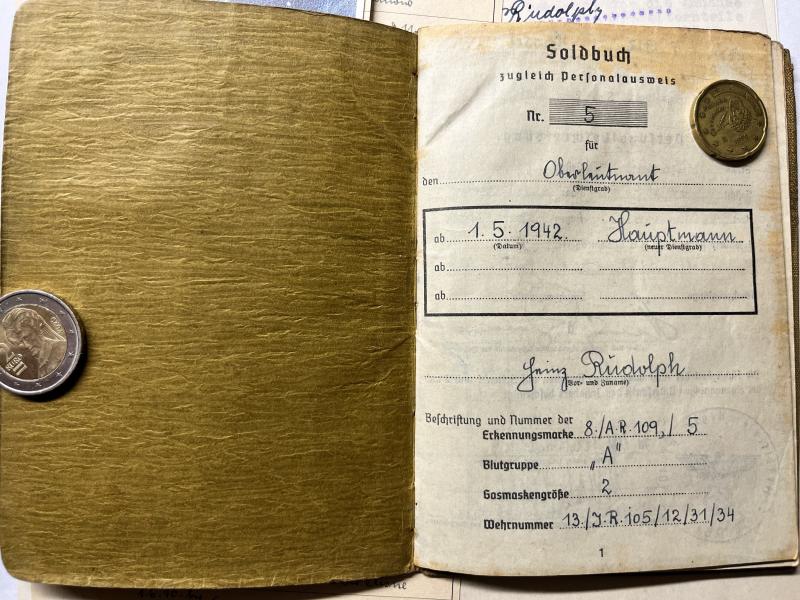 Rudolph
Soldbuch
zugleich Personalausweis
Nr. 5
für
den Oberleutnant
(Dienstgrad)
ab 1. 5. 1942. Hauptmann
(Datum) (neuer Dienstgrad)
ab
ab
Heinz Rudolph
(Vor- und Zuname)
Beschriftung und Nummer der
Erkennungsmarke 8./A.R.109,/5
Blutgruppe „A"
Gasmaskengröße 2
Wehrnummer 13./J.R.105/12/31/34
1
2 EURO